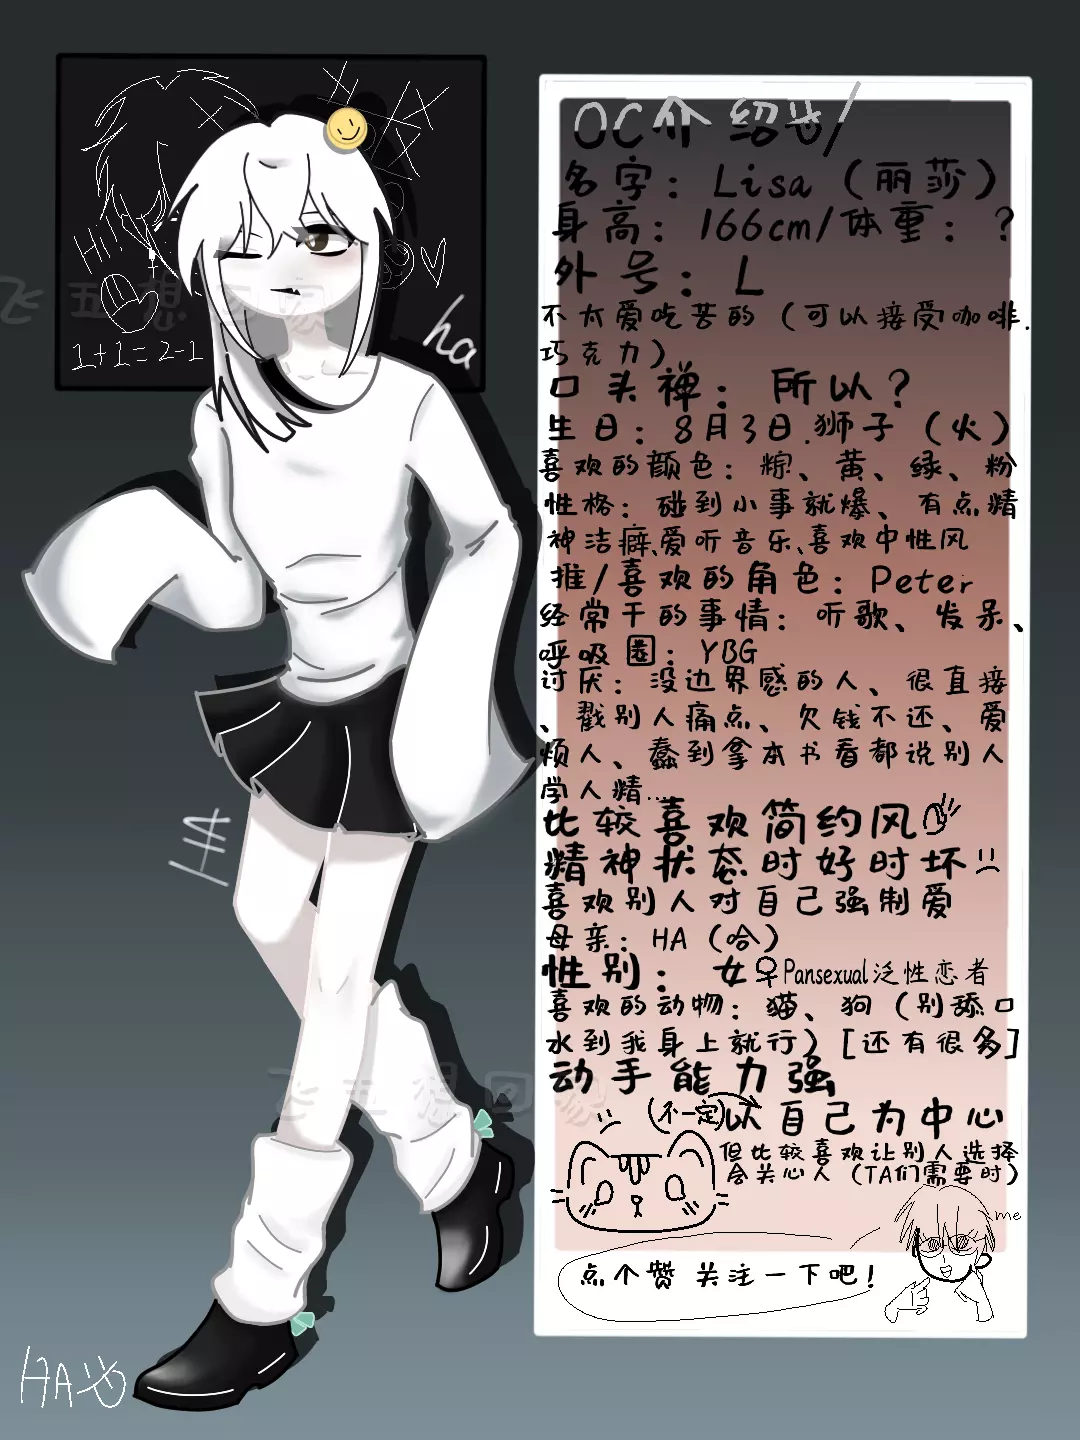 Hi!
1+1=2-1
ha
飞五想回家
OC介绍
名字：Lisa（丽莎）
身高：166cm/体重：？
外号：L
不太爱吃苦的（可以接受咖啡.
巧克力）
口头禅：所以？
生日：8月3日.狮子（火）
喜欢的颜色：粽、黄、绿、粉
性格：碰到小事就爆、有点精
神洁癖、爱听音乐、喜欢中性风
推/喜欢的角色：Peter
经常干的事情：听歌、发呆、
呼吸 圈：YBG
讨厌：没边界感的人、很直接
、戳别人痛点、欠钱不还、爱
烦人、蠢到拿本书看都说别人
学人精...
比较喜欢简约风
精神状态时好时坏
喜欢别人对自己强制爱
母亲：HA（哈）
性别：女♀Pansexual泛性恋者
喜欢的动物：猫、狗（别舔口
水到我身上就行）[还有很多]
动手能力强
（不一定）以自己为中心
但比较喜欢让别人选择
会关心人（TA们需要时）
me
点个赞 关注一下吧！
飞五想回家
HA